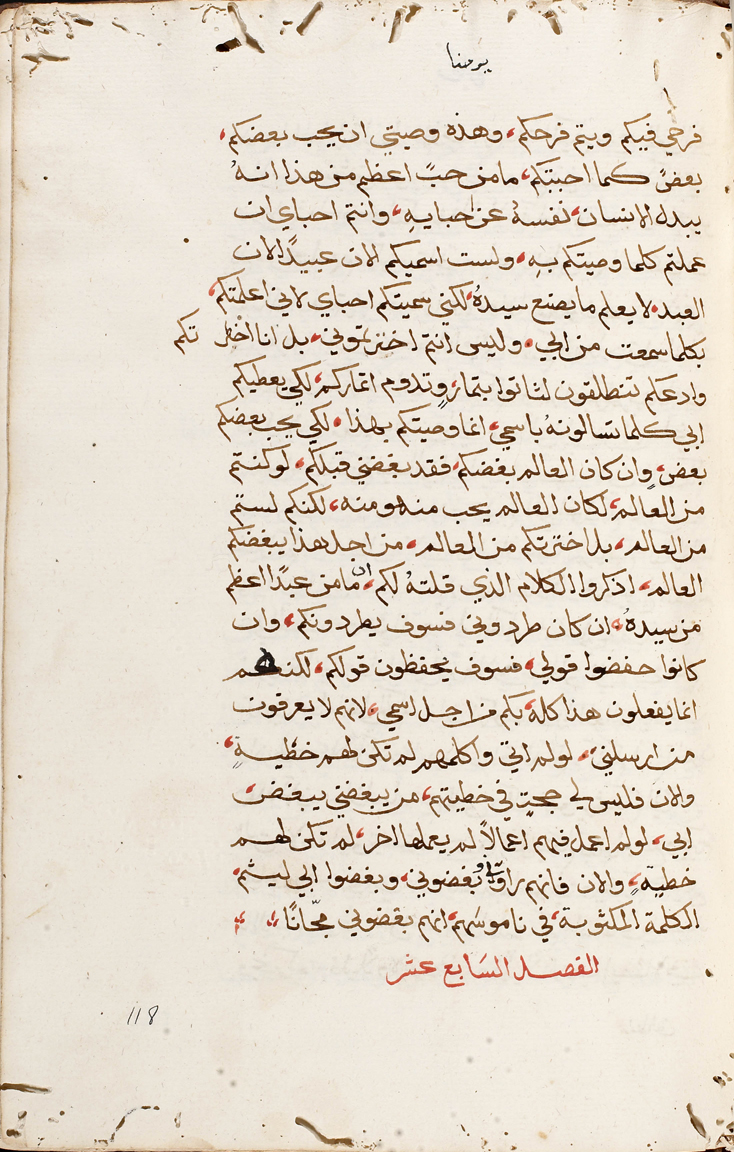 يوحنا
فرحي فيكم ويتم فرحكم، وهذه وصيتي ان يحب بعضكم،
بعضً كما احببتكم، ما من حبً اعظم من هذا انهُ
يبدل الانسان، نفسهُ عن احبايهِ، وانتم احباي ان
عملتم كلما وصيتكم بهِ، ولست اسميكم الان عبيدًا لان
العبد، لا يعلم ما يصنع سيدهُ، لكني سميتكم احباي لاني اعلمتكم،
بكلما سمعت من ابي، وليس انتم اخترتموني، بل انا اختر تكم
وادعكم تنطلقون لتاتوا بتمارٍ، وتدوم اتماركم، لكي يعطيكم
ابي كلما تسالونهُ باسمي، انما وصيتكم بهذا، لكي يحب بعضكم
بعضٍ، وان كان العالم بغضكم، فقد بغضني قبلكم، لو كنتم
من العالم، لكان العالم يحب منهو منه، لكنكم لستم
من العالم، بل اخترتكم من العالم، من اجل هذا يبغضكم
العالم، اذكروا الكلام الذي قلتهُ لكم، ان ما من عبدًا اعظم
من سيدهُ، ان كان طردوني فسوف يطردونكم، وان
كانوا حفضوا قولي، فسوف يحفظون قولكم، لكنهم
انما يفعلون هذا كلهُ، بكم من اجل اسمي، لانهم لا يعرفون
من ارسلني، لو لم اتي واكلمهم لم تكن لهم خطيةٍ،
والان فليس لي ححتٍ في خطيتهم، من يبغضني يبغض،
ابي، لو لم اعمل فيهم اعمالاً لم يعملها اخر، لم تكن لهم
خطيةٍ، والان فانهم راوني وبغضوني، وبغضوا ابي ليتم،
الكلمة المكتوبة، في ناموسهم، انهم بغضوني مجّانًا،
الفصل السابع عشر
118